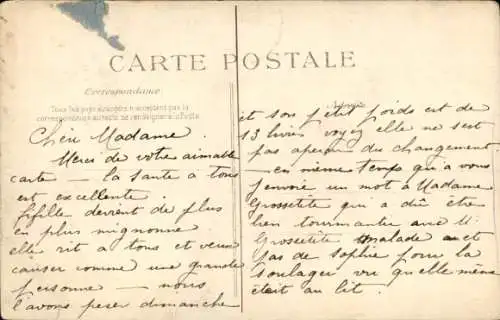 CARTE POSTALE
Correspondance
Tous les pays étrangers n'acceptent pas la
correspondance au recto se renseigner à la Poste
Adresse
Chère Madame.
Merci de votre aimable
carte — la santé à tous
est excellente.
fifille devient de plus
en plus mignonne.
elle rit a tous et veux
causer comme une grande
personne — nous
l'avons peser dimanche
et son petit poids est de
13 livres voyez elle ne s'est
pas aperçu du changement
— en même temps qu'a vous
j'envoie un mot à Madame
Grosselite qui a dû être
bien tourmentée avec M.
Grosselite malade et
pas de Sophie pour la
soulager vu qu'elle même
était au lit.